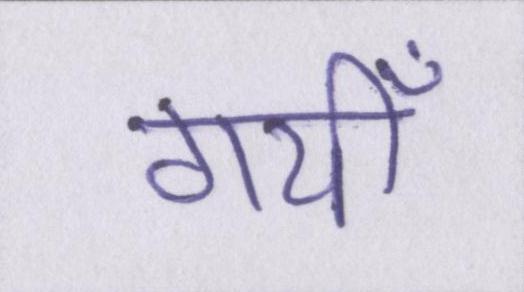 गयीँ